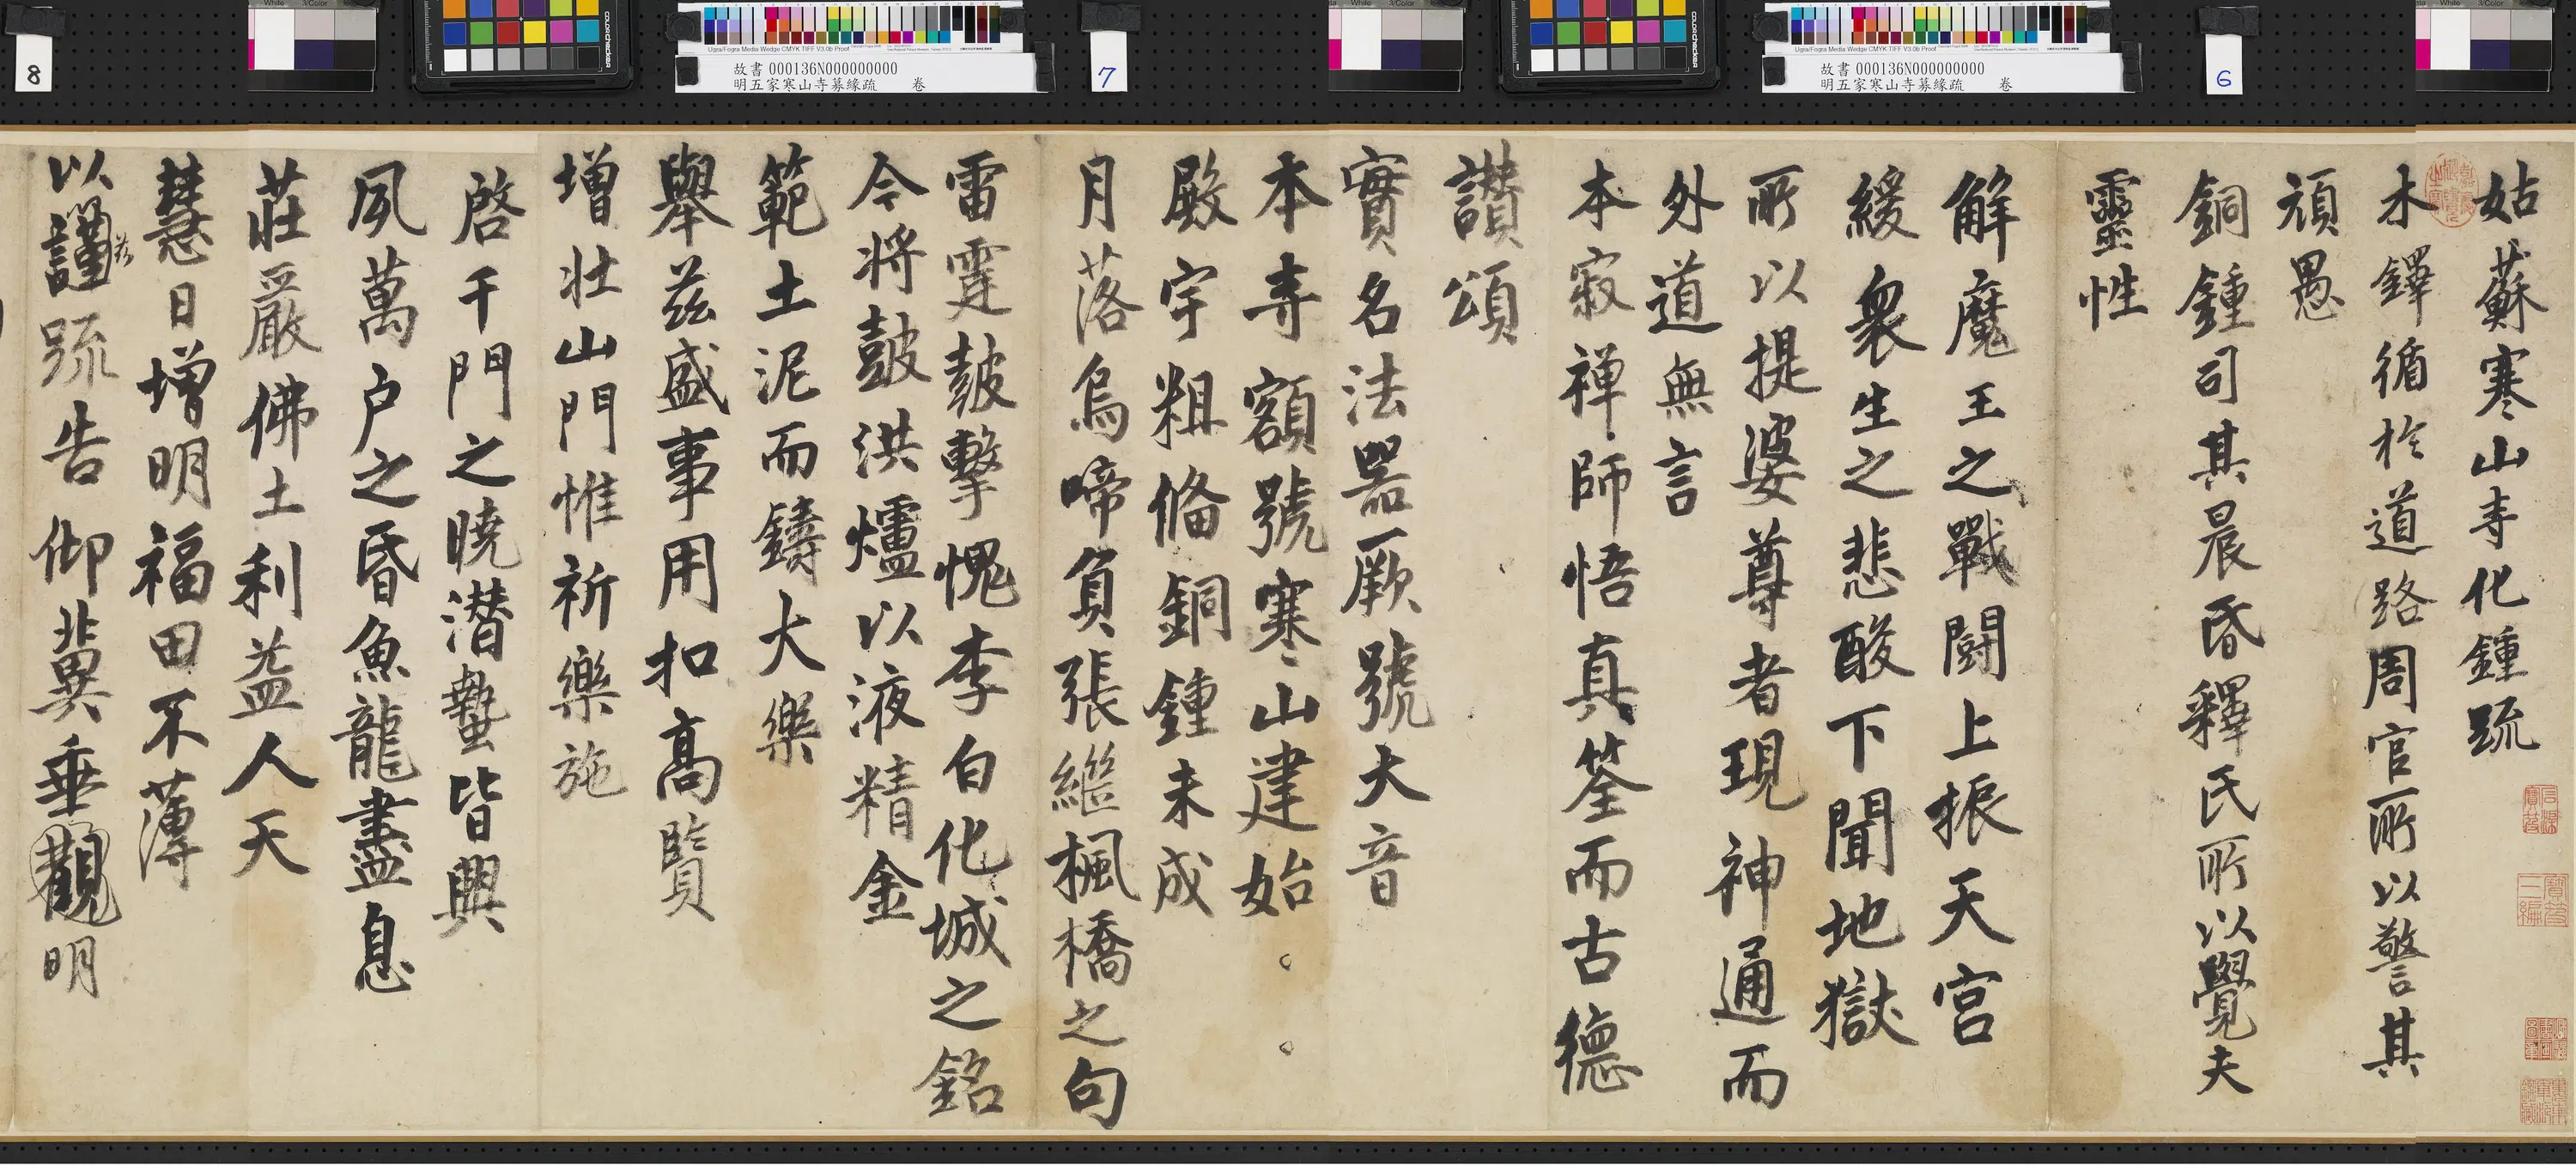 姑蘇寒山寺化鍾疏
木鐸循於道路周官所以警其
頑愚
銅鍾司其晨昏釋氏所以覺夫
靈性
解魔王之戰鬪上振天宮
緩衆生之悲酸下聞地獄
所以提婆尊者現神通而
外道無言
本寂禪師悟真筌而古德
讃頌
實名法器厥號大音
本寺額號寒山建始。。
殿宇粗備銅鍾未成
月落烏啼負張繼楓橋之句
雷霆鼓擊愧李白化城之銘
今將鼓洪爐以液精金
範土泥而鑄大樂
舉茲盛事用扣高賢
增壯山門惟祈樂施
啓千門之曉潛蟄皆興
夙萬户之昏魚龍盡息
莊嚴佛土利益人天
慧日增明福田不薄
以謹疏告仰冀垂觀明
茲
8
7
6
故書 000136N000000000
明五家寒山寺募緣疏 卷
故書 000136N000000000
明五家寒山寺募緣疏 卷
Ugra/Fogra Media Wedge CMYK TIFF V3.0b Proof
Ugra/Fogra Media Wedge CMYK TIFF V3.0b Proof
White 3/Color
White 3/Color
White 3/Color
colorchecker
colorchecker